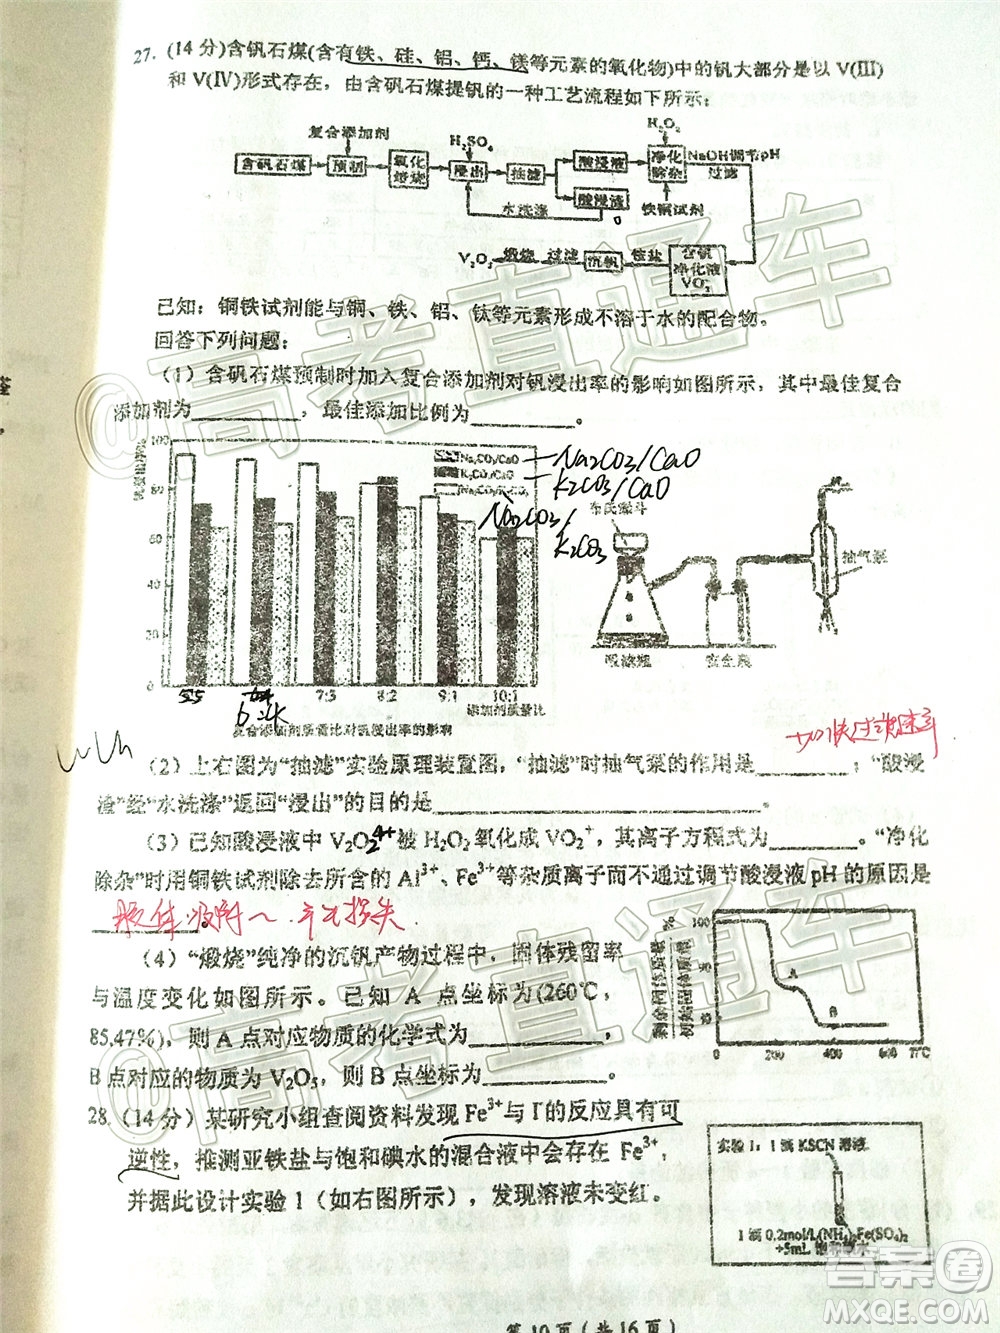 27. (14分)含钒石煤(含有铁、硅、铝、钙、镁等元素的氧化物)中的钒大部分是以 V(III)
和 V(IV)形式存在，由含矾石煤提钒的一种工艺流程如下所示：
复合添加剂 H₂SO₄ H₂O₂
含矾石煤 预制 氧化焙烧 浸出 抽滤 酸浸液 净化除杂 NaOH调节pH 过滤
水洗涤 酸浸渣 铁铜试剂
V₂O₅ 煅烧 过滤 沉钒 铵盐 含钒净化液
已知：铜铁试剂能与铜、铁、铝、钛等元素形成不溶于水的配合物。
回答下列问题：
（1）含矾石煤预制时加入复合添加剂对钒浸出率的影响如图所示，其中最佳复合
添加剂为________，最佳添加比例为________。
100
80
60
40
20
0
Na₂CO₃/CaO
K₂CO₃/CaO
Na₂CO₃/K₂CO₃
Na2CO3/CaO
K2CO3/CaO
Na2CO3/
K2CO3
5:5 7:3 8:2 9:1 10:1
添加剂质量比
复合添加剂质量比对钒浸出率的影响
布氏漏斗
抽气泵
吸滤瓶 安全瓶
加快过滤速率
（2）上右图为“抽滤”实验原理装置图，“抽滤”时抽气泵的作用是________；“酸浸
渣”经“水洗涤”返回“浸出”的目的是________________。
（3）已知酸浸液中 V₂O₂⁴⁺被 H₂O₂氧化成 VO₂⁺，其离子方程式为________。“净化
除杂”时用铜铁试剂除去所含的 Al³⁺、Fe³⁺等杂质离子而不通过调节酸浸液 pH 的原因是
________。
胶体吸附～.产生损失
（4）“煅烧”纯净的沉钒产物过程中，固体残留率
与温度变化如图所示。已知 A 点坐标为(260℃，
85.47%)，则 A 点对应物质的化学式为________，
B 点对应的物质为 V₂O₅，则 B 点坐标为________。
剩余固体质量
初始固体质量
%
100
A
B
0 200 400 600 T/℃
28.（14分）某研究小组查阅资料发现 Fe³⁺与 I⁻的反应具有可
逆性，推测亚铁盐与饱和碘水的混合液中会存在 Fe³⁺
并据此设计实验 1（如右图所示），发现溶液未变红。
实验 I：1 滴 KSCN 溶液
1 滴 0.2mol/L(NH₄)₂Fe(SO₄)₂
+5mL 饱和碘水
第 10 页（共 16 页）
@高考直通车
@高考直通车
答案圈
MXQE.COM